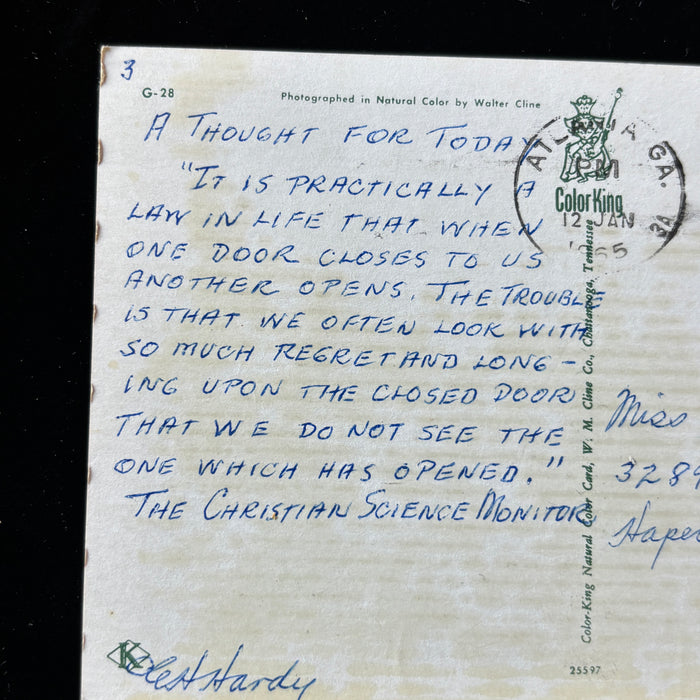 3
G-28
Photographed in Natural Color by Walter Cline
A THOUGHT FOR TODAY
"IT IS PRACTICALLY A
LAW IN LIFE THAT WHEN
ONE DOOR CLOSES TO US
ANOTHER OPENS. THE TROUBLE
IS THAT WE OFTEN LOOK WITH
SO MUCH REGRET AND LONG-
ING UPON THE CLOSED DOOR
THAT WE DO NOT SEE THE
ONE WHICH HAS OPENED."
THE CHRISTIAN SCIENCE MONITOR
Hardy
K
ATLANTA GA.
PM
12 JAN
1965
ColorKing
Color-King Natural Color Card, W. M. Cline Co., Chattanooga, Tennessee
25597
Miss
328
Hape